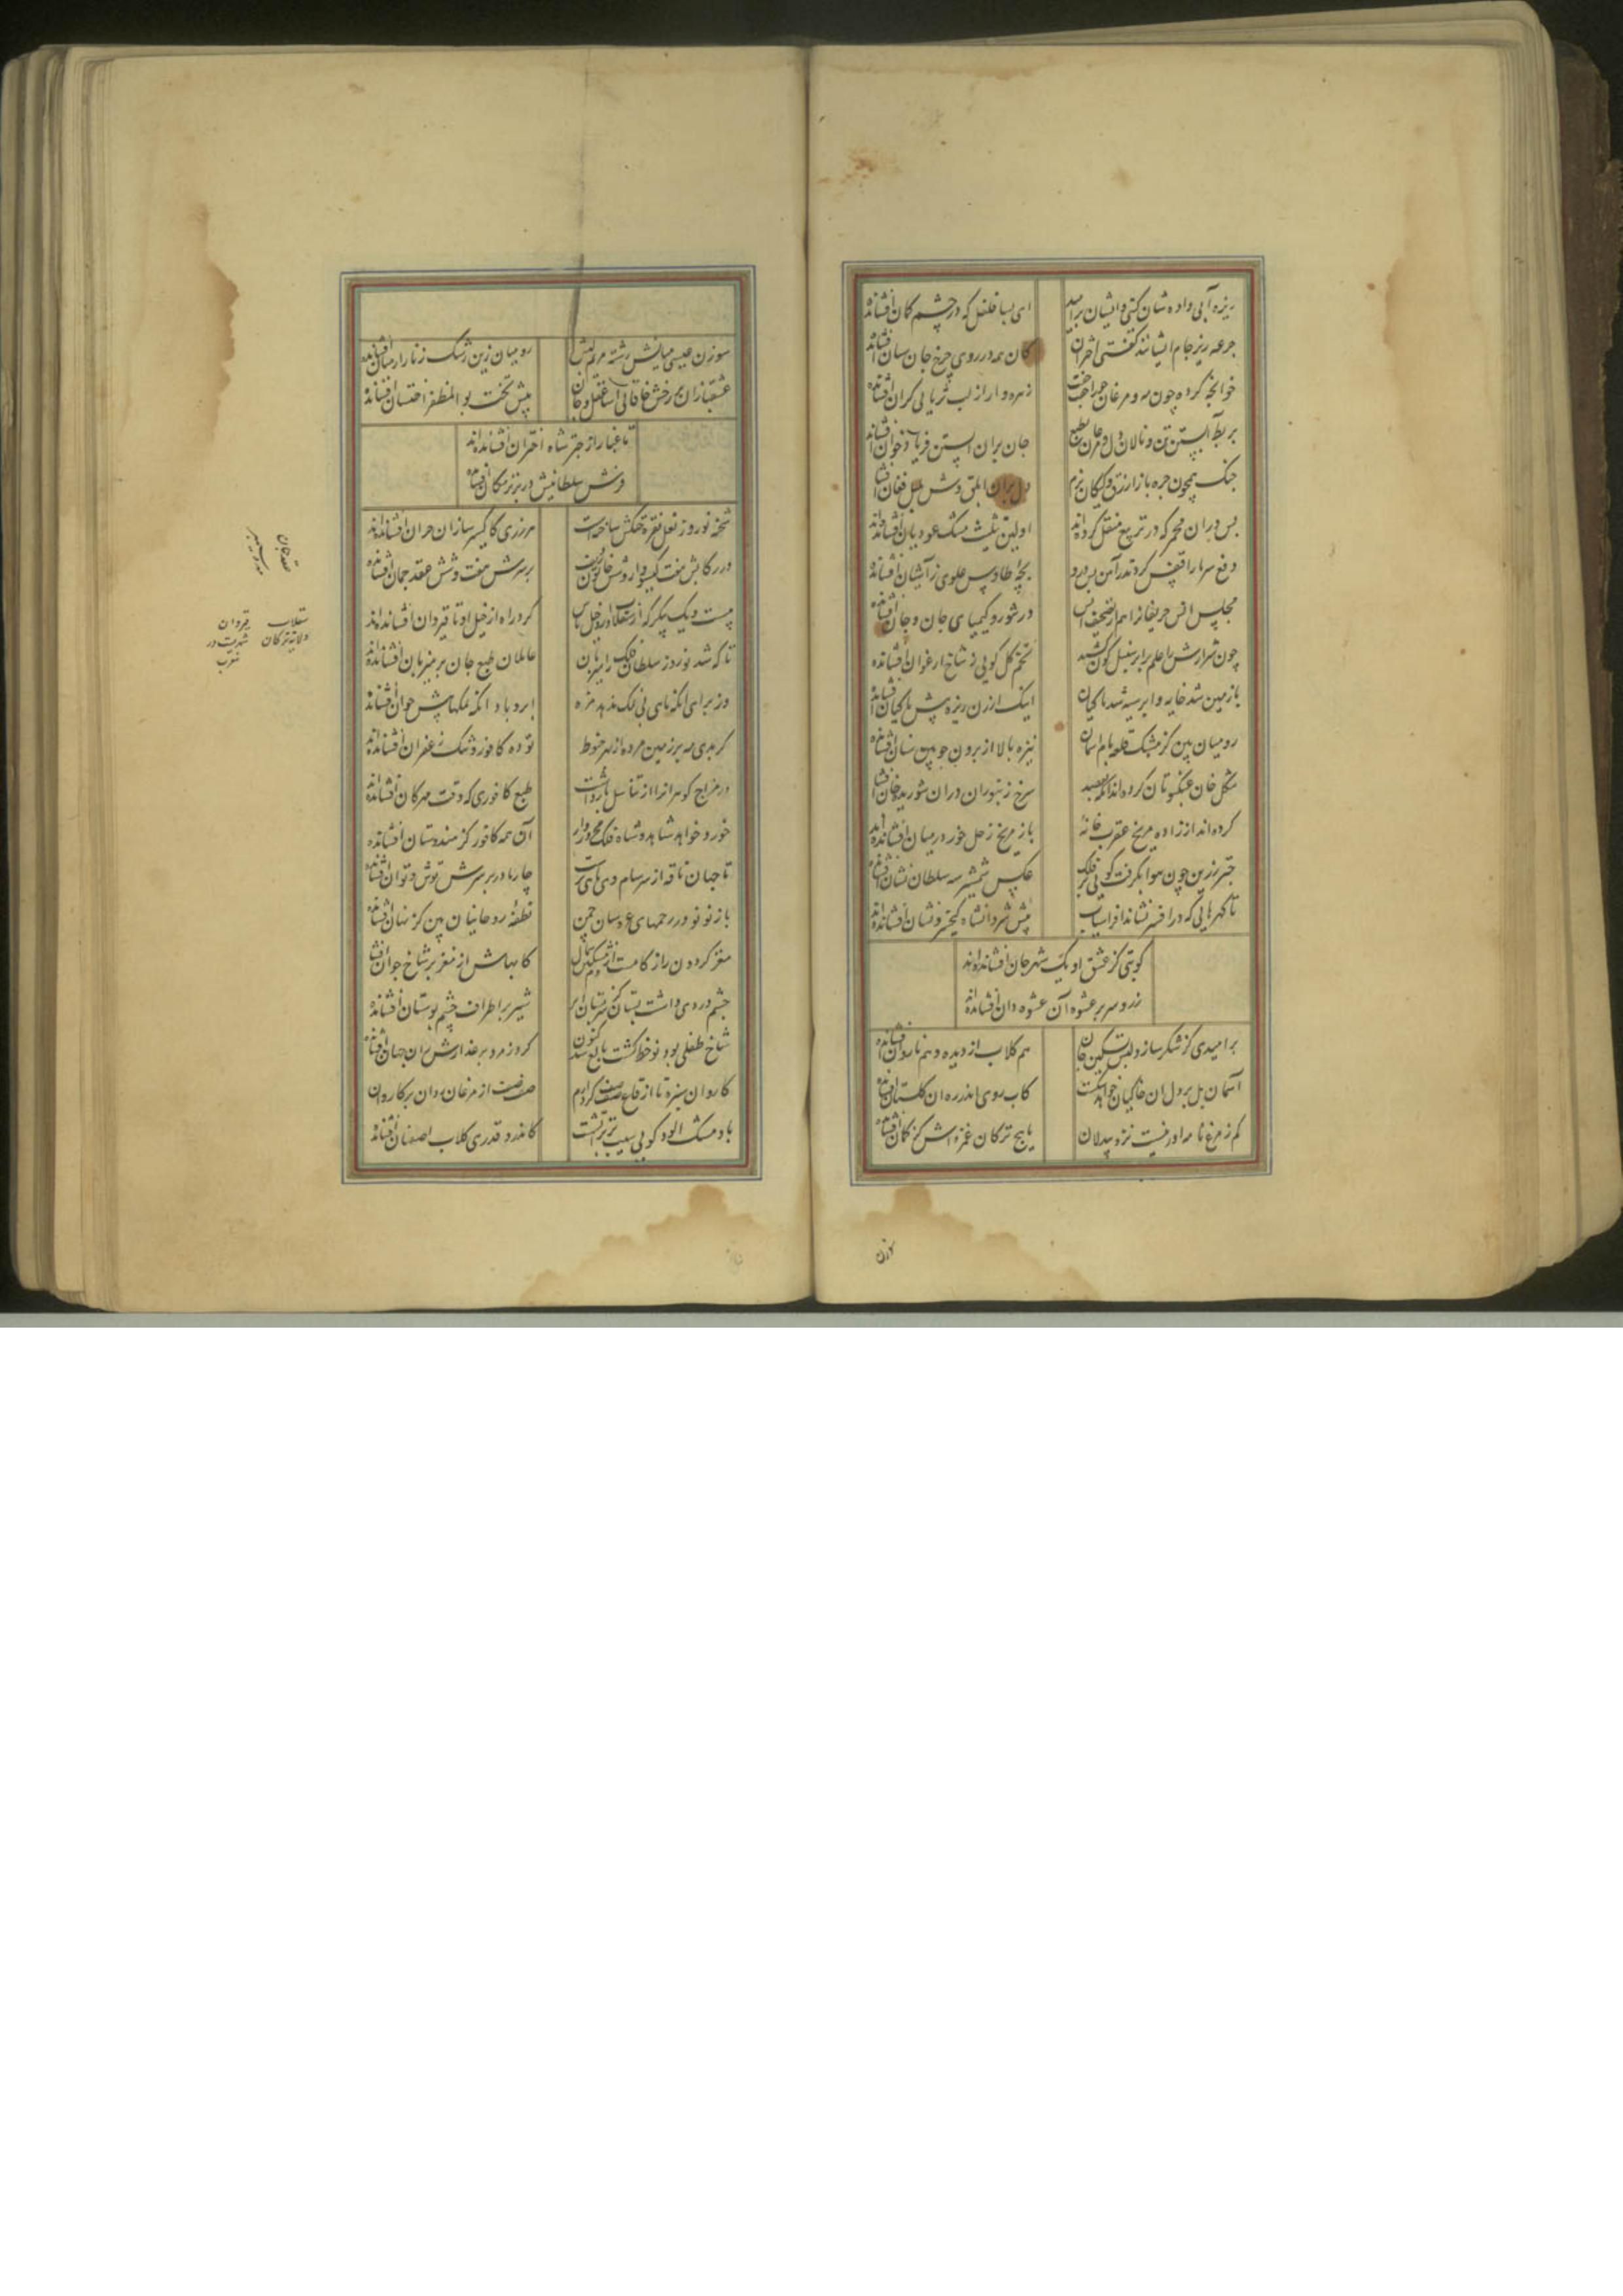 ریزه آبی داده شان گیتی و ایشان بر امید
ای بسا فلفل که در چشم کمان افشانده‌اند
جرعه ریز جام ایشانند گفتی اختران
کان همه در روی چرخ جان ستان افشانده‌اند
خوانچه کرده چون مه و مرغان
زهره وار از لب ثریا بی کران افشانده‌اند
بربط آبستن تن و نالان دل و مرغان بطبع
جان بران آبستن فریاد خوان افشانده‌اند
چنگ همچون جره باز ازرق و کبکان بزم
دل بران ابلق وش طبل فغان افشانده‌اند
پس در آن مجمر که در تربیع منقل کرده‌اند
اولین تثلیث مشک عود دیان افشانده‌اند
دفع سرما را قفس کردند ز آهن پس درو
بچه طاوس علوی ز آشیان افشانده‌اند
مجلس انس حریفان را هم از تصحیف انس
در تنور و کیمیای جان و جان افشانده‌اند
چون شرارش را علم بر ابر سنبل گون کشید
تخم گل گویی ز شاخ ارغوان افشانده‌اند
یا زمین شد خایه و ابر سیه شد ماکیان
اینک ارزن ریزه پیش ماکیان افشانده‌اند
رومیان بین کز مشبک قلعه بام آسمان
نیزه بالا از برون چوبین سنان افشانده‌اند
شکل خان عنکبوتان کرده‌اند آنگه بقصد
سرخ زنبوران در آن شوریده خان افشانده‌اند
کرده‌اند از زاده مریخ عقرب خانه
باز مریخ زحل خور در میان افشانده‌اند
چتر زرین چون هوا بگرفت گویی بر فلک
عکس شمشیر شه سلطان نشان افشانده‌اند
تا گهرهایی که در افسر نشاند افراسیاب
پیش شروانشاه کیخسرو نشان افشانده‌اند
کو بتی کز عشق او یک شهر جان افشانده‌اند
زر و سر بر عشوه آن عشوه دان افشانده‌اند
بر امیدی کز شکر سازد لبش تسکین جان
هم گلاب از دیده و هم ناردان افشانده‌اند
آسمان پل بر دل آن خاکیان خواهد شکست
کاب روی اندر ره آن گلستان افشانده‌اند
کم ز مرغ نامه آور نیست نزد بیدلان
پیچ ترکان غمزه‌اش کز کمان افشانده‌اند
سوزن عیسی میانش رشته مریم لبش
رومیان زین رشک زنار از میان افشانده‌اند
عشقبازان بر رخش خاقانی آسا عقل و جان
پیش تخت بوالمظفر اخستان افشانده‌اند
تا غبار از چتر شاه اختران افشانده‌اند
فرش سلطانیش در برتر مکان افشانده‌اند
شحنه نوروز نعل نقره خنگش ساخته‌ست
هر زری کاکسیر سازان خزان افشانده‌اند
در رکابش هفت گیسودار و شش خاتون ردیف
بر سرش هفت و شش عقد جمان افشانده‌اند
بیست و یک پیکر که از سقلاب دارد خیلتاش
گرد راه از خیل او تا قیروان افشانده‌اند
تا که شد نوروز سلطان فلک را میزبان
عاملان طبع جان بر میزبان افشانده‌اند
وز برای آنکه نانی بی نمک ندهد مزه
ابر و باد آنگه نمکها پیش خوان افشانده‌اند
گر بدی مه بر زمین مرده از بهر حنوط
توده کافور و تنگ زعفران افشانده‌اند
در مزاج گوهران را از تناسل بازداشت
طبع کافوری که وقت مهرگان افشانده‌اند
خورد خواهد شاهد و شاه فلک محروروار
آن همه کافور کز هندوستان افشانده‌اند
تا جهان ناقه شد از سرسام دی ماهی برست
چار مادر بر سرش توش و توان افشانده‌اند
باز نونو در رحمهای عروسان چمن
نطفه روحانیان بین کز نهان افشانده‌اند
مغز گردون را زکام است از دم مشکین شمال
کابهاش از مغز بر شاخ جوان افشانده‌اند
چشم دردی داشت بستان کز سر پستان ابر
شیر بر اطراف چشم بوستان افشانده‌اند
شاخ طفلی بود نوخط گشت و بالغ شد کنون
گرد زمرد بر عذارش زان جهان افشانده‌اند
کاروان سبزه تا از قاع صفصف کرد ارم
صف صف از مرغان روان بر کاروان
باد مشک آلود گویی سیب تر بر آتش است
کاندر و قدری گلاب اصفهان افشانده‌اند
سقلاب ولایة ترکان
قیروان شهریست در مغرب